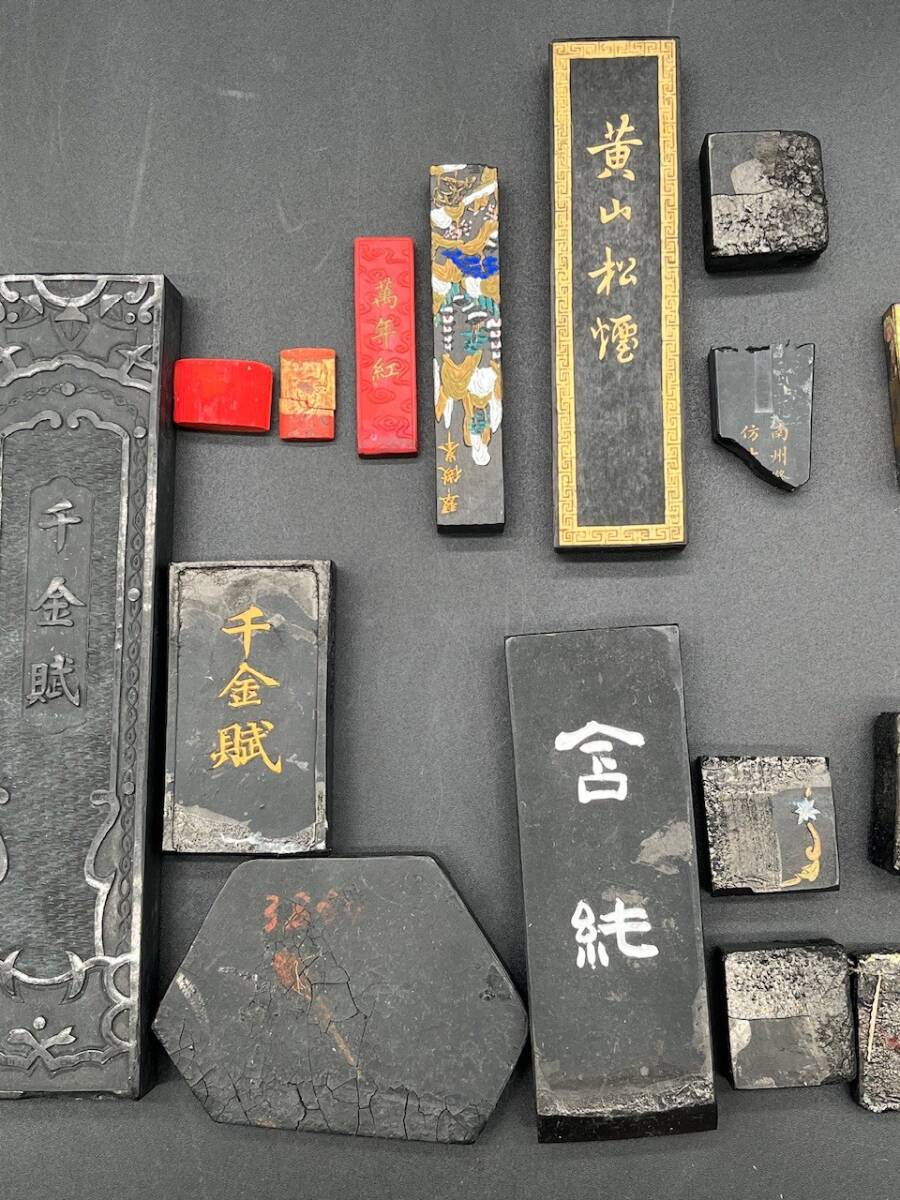 千金賦
千金賦
萬年紅
黄山松煙
南州
仿
含純